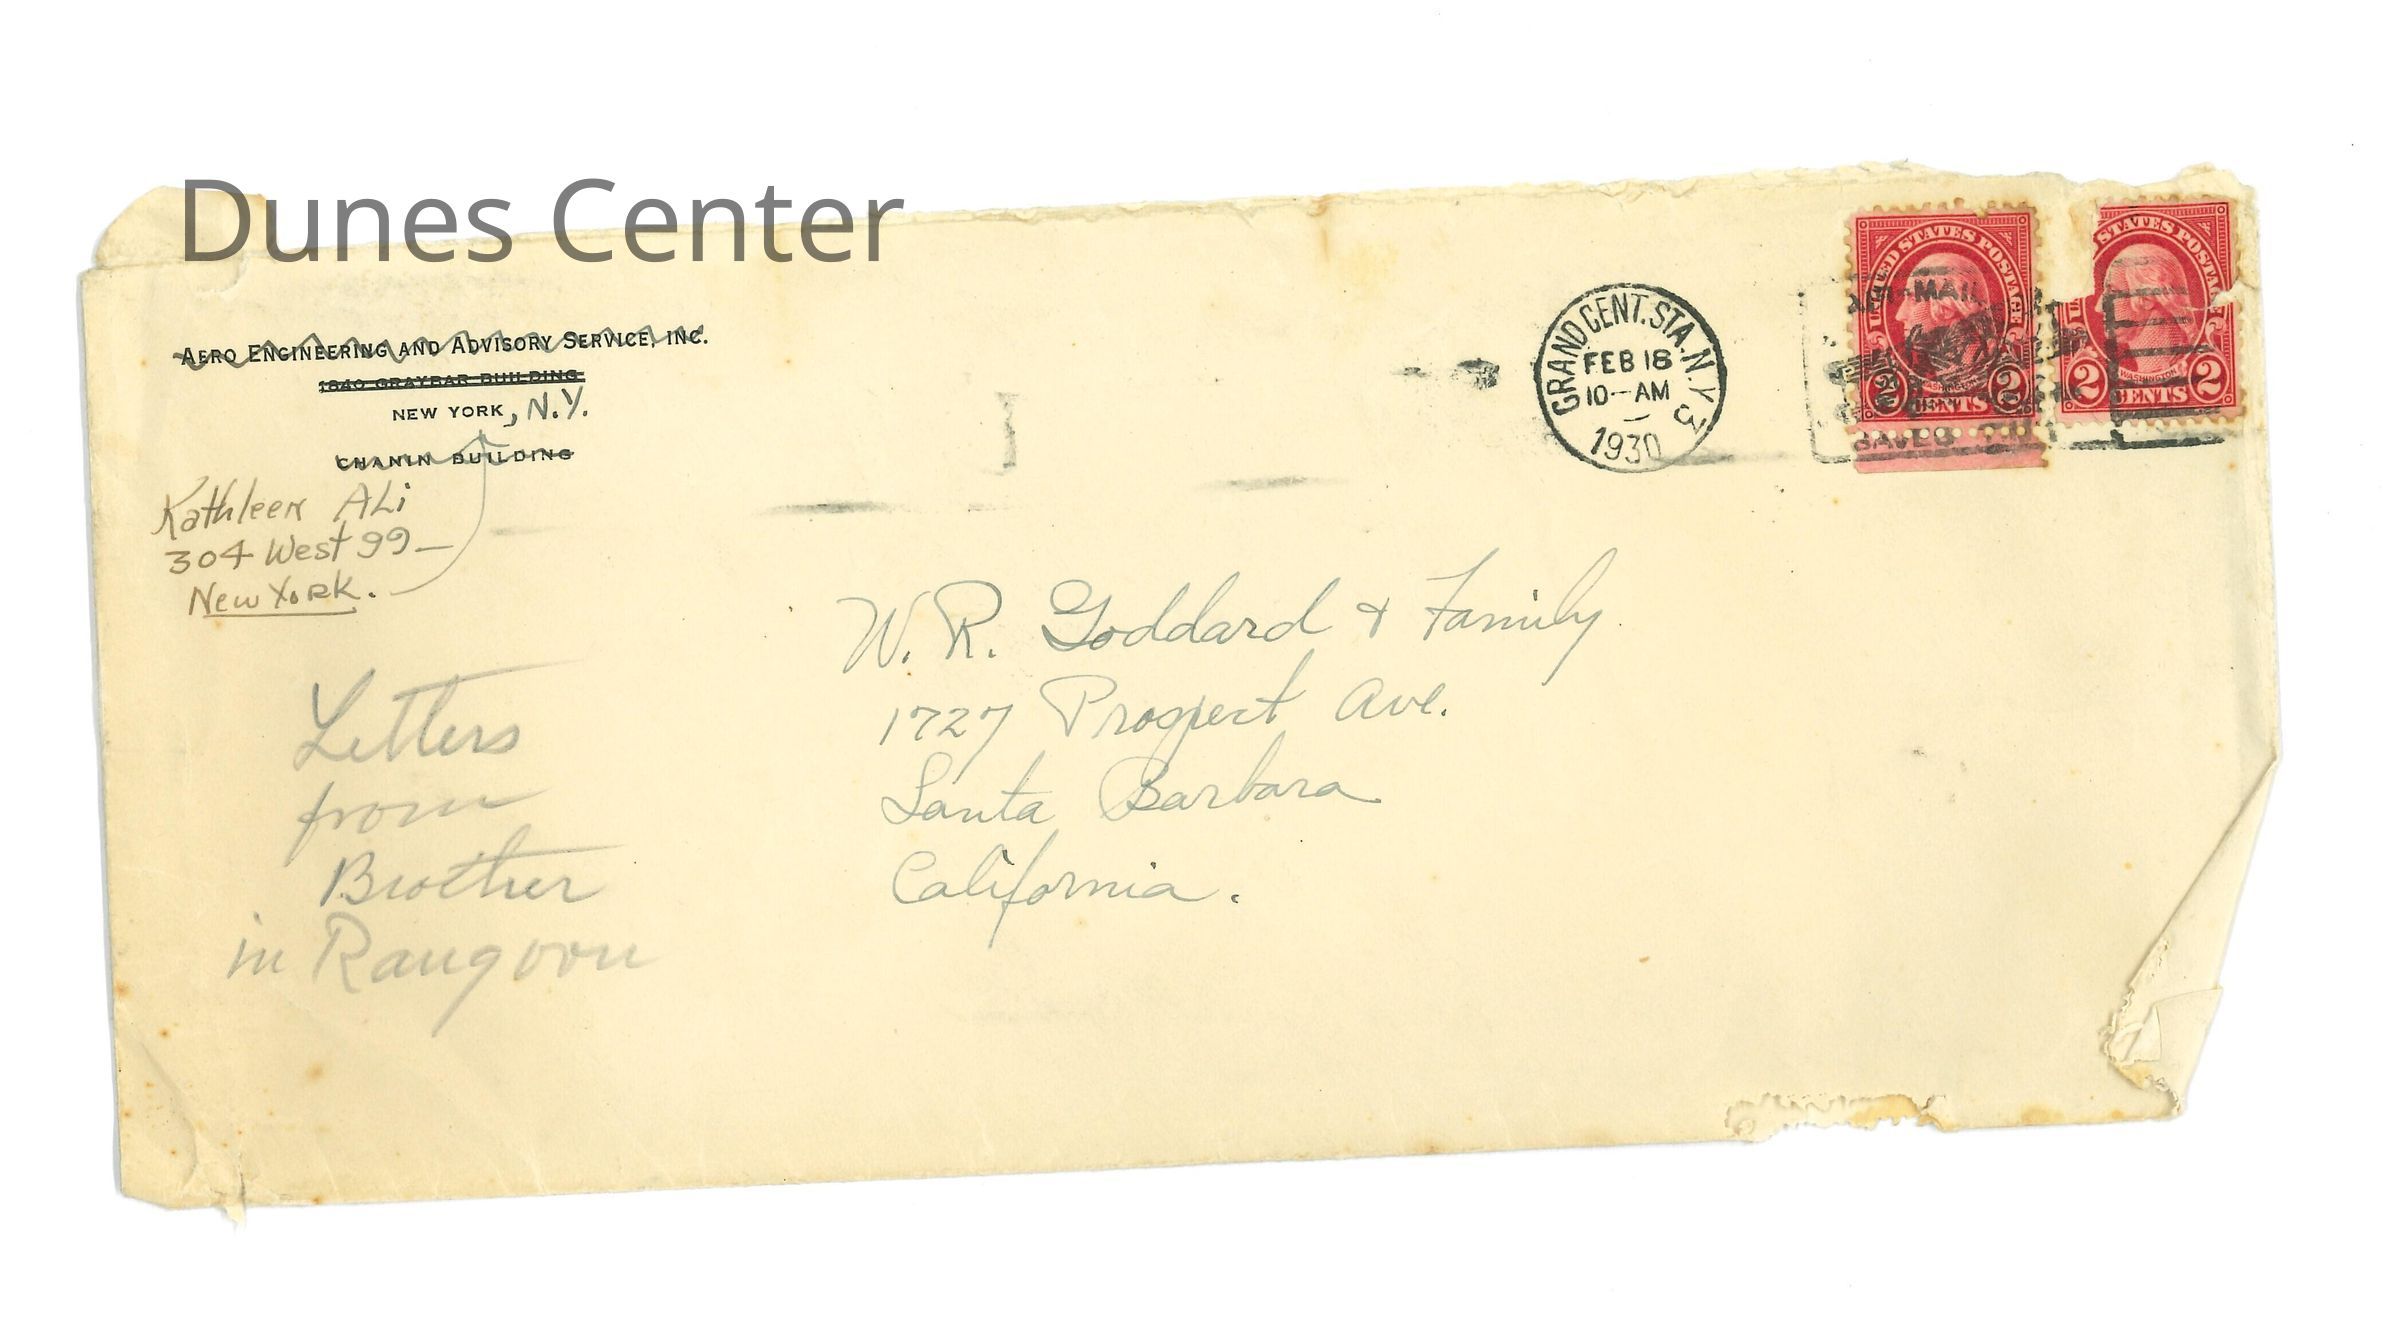 Dunes Center
AERO ENGINEERING AND ADVISORY SERVICE, INC.
1840 GRAYBAR BUILDING
NEW YORK, N.Y.
CHANIN BUILDING
Kathleen ALi
304 West 99—
New York.
Letters
from
Brother
in Rangoon
GRAND CENT. STA. N.Y. 3
FEB 18
10-AM
1930
AIR MAIL
SAVES TIME
UNITED STATES POSTAGE
WASHINGTON
2 CENTS 2
STATES POSTAGE
WASHINGTON
2 CENTS 2
W. R. Goddard & Family
1727 Prospect Ave.
Santa Barbara
California.